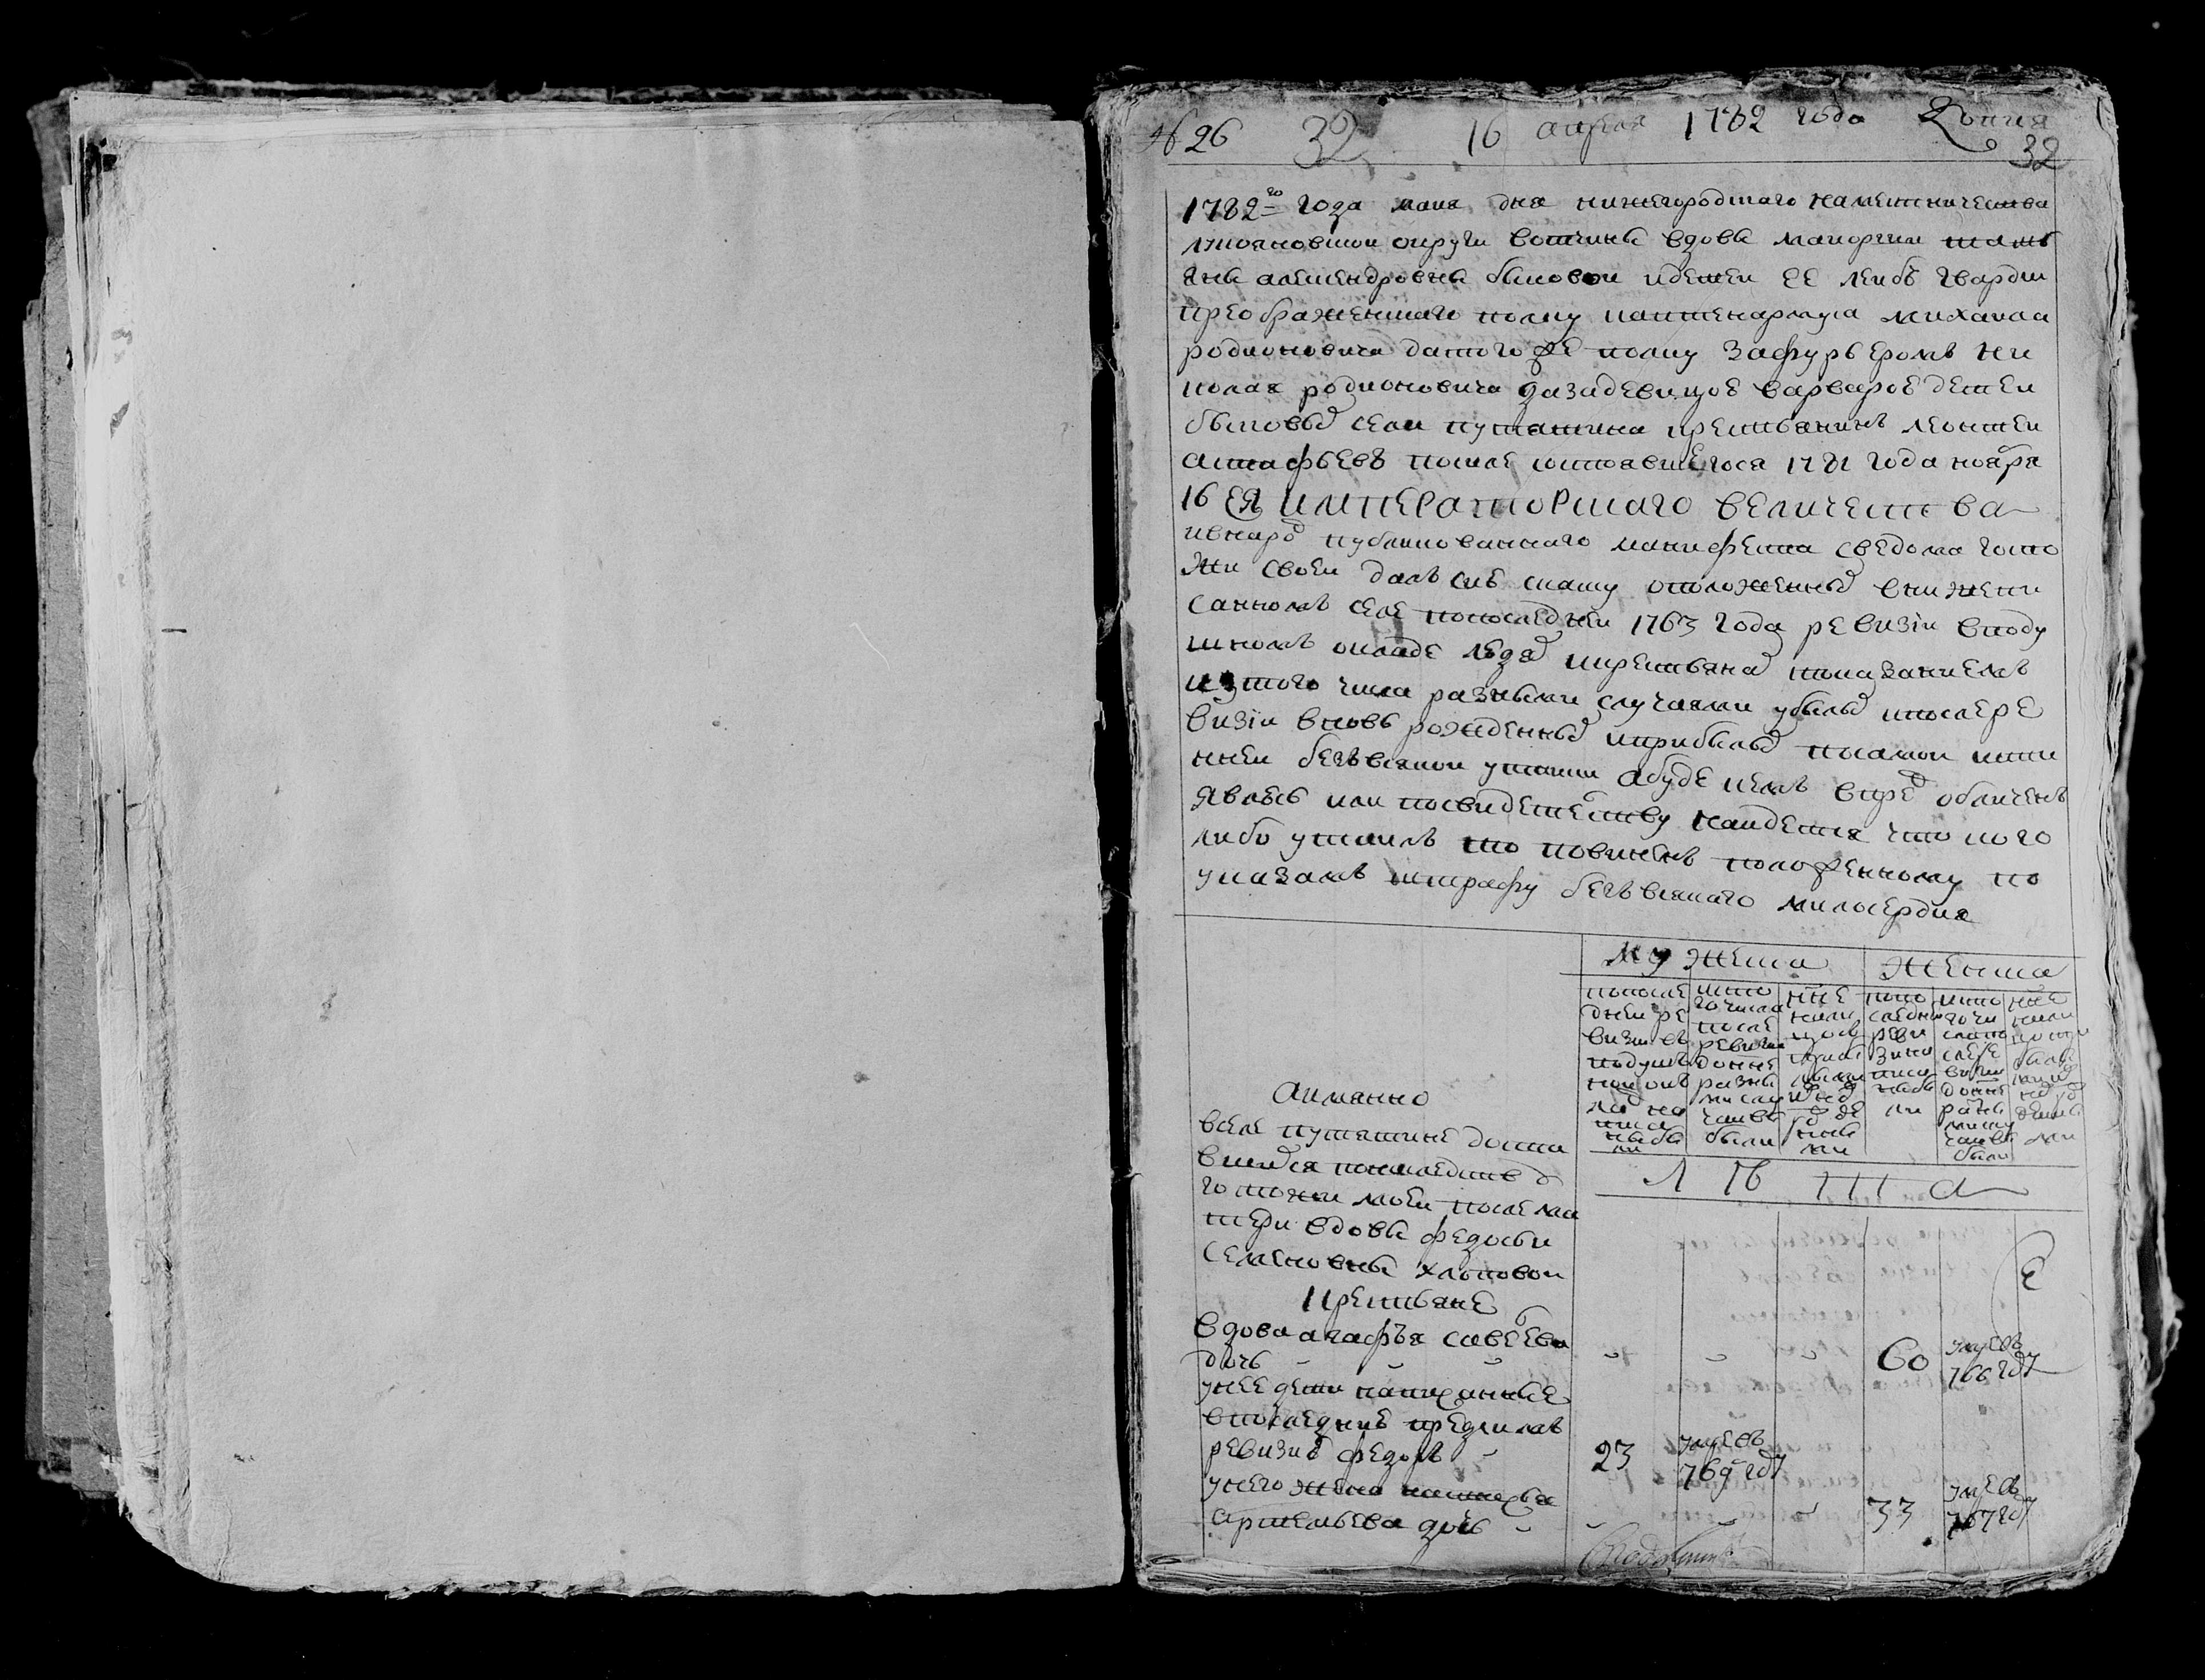 № 26 32 16 апреля 1782 года Копия
32
1782го года маия дня нижегородскаго наместничества
лукояновской округи вотчины вдовы маиорши тать
яны алексендровны быковой идетеи ее леибъ гвардии
преображенскаго полку каптенармуса михаила
родионовича датогоже полку зафурьеромъ ни
колая родионовича дазадевицое варварое детеи
быковых села путятина крестьянинъ леонтеи
астафьевъ после состоявшегося 1781 года ноября
16 ея императорскаго величества
ивнарод публикованнаго манифеста сведома госпо
жи своеи далъ сию сказку оположенных внижепи
санномъ селе попоследнеи 1763 года ревизiи вподу
шномъ окладе людях икрестьянах показаниемъ
изтого числа разными случаями убылых ипослере
визiи вновь рожденных иприбылых посамои исти
ннеи безъвсякои утаики абуде кемъ впред обличенъ
явлюсь или посвидетельству наидется что кого
либо утаилъ то повиненъ положенному по
указамъ штрафу безъвсякаго милосердия
мужеска женска
попосле
днеи ре
визии въ
подушъ
номъ окъ
ладе на
писа
ныбы
ли
исто
гочисла
после
ревизии
доныне
разны
ми слу
чаивы
были
ныне
на
лицо
попо
следнеи
реви
зии на
писа
ныбы
ли
исто
гочи
сла по
слере
визии
доныне
разны
мислу
чаивы
были
ныне
на
лицо
Аимянно
вселе путятине доста
вшихся понаследств
госпоже моеи после ма
тери вдовы федосьи
семеновны хлоповои
Крестьяне
лѣта
вдова агафья савельева
дочь „ „ „ „ „ „ 60 умре въ
766 году
унее дети написанные
впоследнию предсимъ
ревизию федоръ „ 23 умре въ
769 году
унего жена настасья
артемьева дочь „ „ „ „ 33 умре въ
767 году